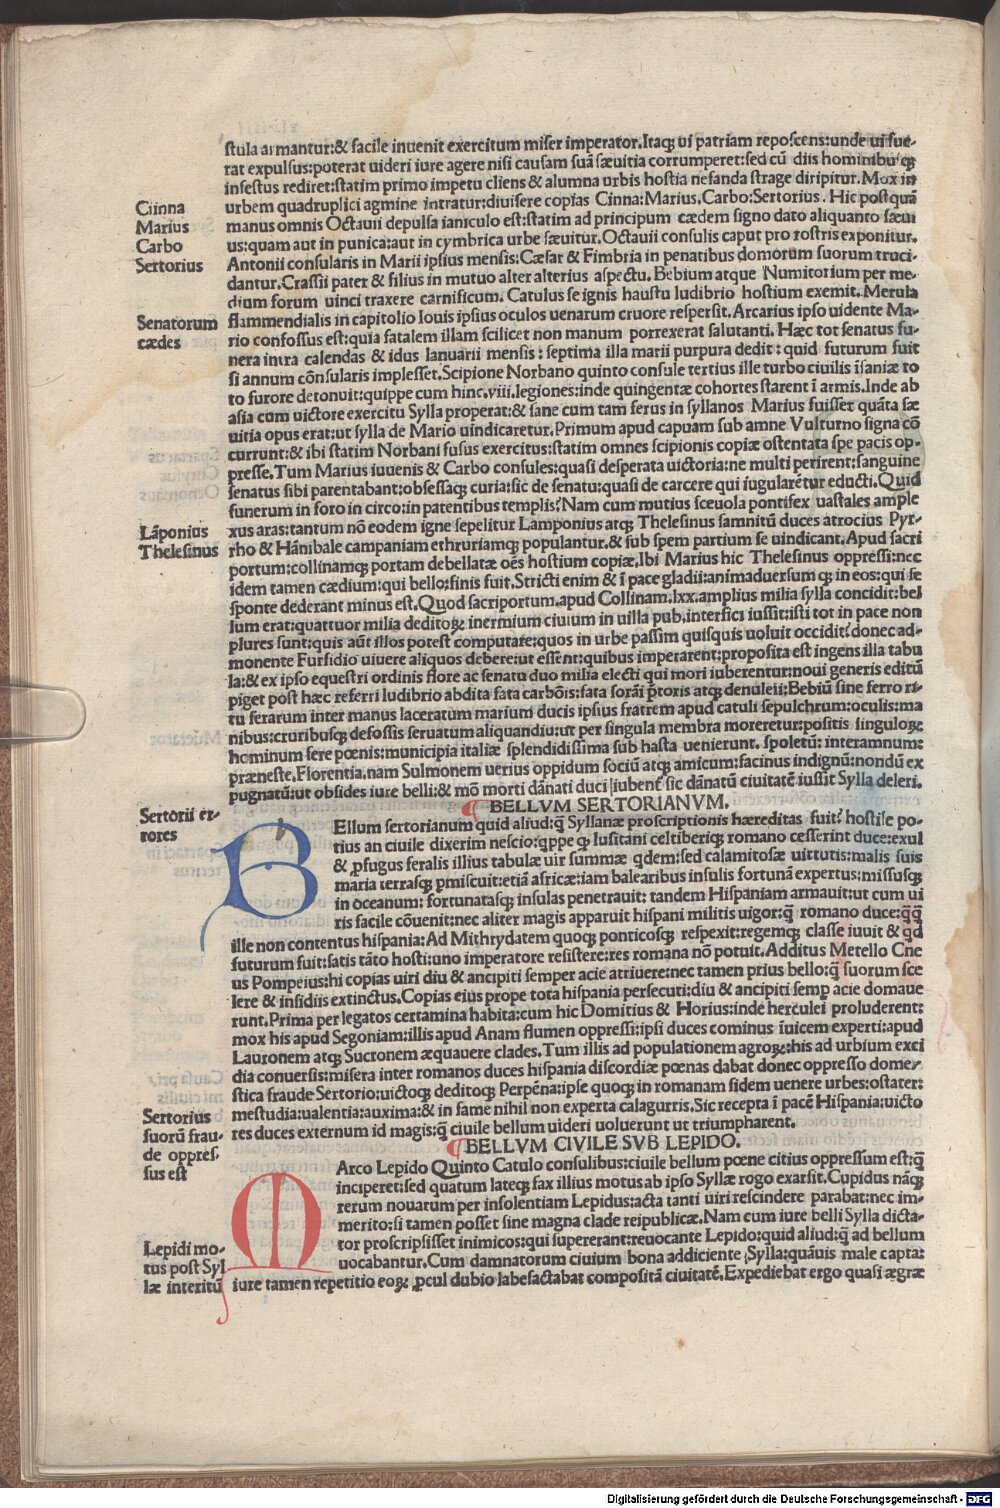 stula armantur:& facile inuenit exercitum miser imperator.Itaqʒ ui patriam reposcens:unde ui fue-
rat expulsus:poterat uideri iure agere nisi causam suā sæuitia corrumperet:sed cū diis hominibusqʒ
infestus rediret:statim primo impetu cliens & alumna urbis hostia nefanda strage diripitur.Mox in
urbem quadruplici agmine intratur:diuisere copias Cinna:Marius.Carbo:Sertorius. Hic postquā
manus omnis Octauii depulsa ianiculo est:statim ad principum cædem signo dato aliquanto sæui
us:quam aut in punica:aut in cymbrica urbe sæuitur.Octauii consulis caput pro rostris exponitur.
Antonii consularis in Marii ipsius mensis:Cæsar & Fimbria in penatibus domorum suorum truci-
dantur.Crassii pater & filius in mutuo alter alterius aspectu.Bebium atque Numitorium per me-
dium forum uinci traxere carnificum. Catulus se ignis haustu ludibrio hostium exemit. Merula
flammendialis in capitolio Iouis ipsius oculos uenarum cruore respersit.Arcarius ipso uidente Ma-
rio confossus est:quia fatalem illam scilicet non manum porrexerat salutanti. Hæc tot senatus fu-
nera intra calendas & idus Ianuarii mensis: septima illa marii purpura dedit: quid futurum fuit
si annum cōsularis implesset.Scipione Norbano quinto consule tertius ille turbo ciuilis īsaniæ to
to furore detonuit:quippe cum hinc.viii.legiones:inde quingentæ cohortes starent ī armis.Inde ab
asia cum uictore exercitu Sylla properat:& sane cum tam ferus in syllanos Marius fuisset quāta sæ
uitia opus erat:ut sylla de Mario uindicaretur.Primum apud capuam sub amne Vulturno signa cō
currunt:& ibi statim Norbani fusus exercitus:statim omnes scipionis copiæ ostentata spe pacis op-
presse.Tum Marius iuuenis & Carbo consules:quasi desperata uictoria:ne multi perirent:sanguine
senatus sibi parentabant:obsessaqʒ curia:sic de senatu:quasi de carcere qui iugularētur educti.Quid
funerum in foro in circo:in patentibus templis? Nam cum mutius sceuola pontifex uastales ample
xus aras:tantum nō eodem igne sepelitur Lamponius atqʒ Thelesinus samnitū duces atrocius Pyr-
rho & Hānibale campaniam ethruriamqʒ populantur.& sub spem partium se uindicant.Apud sacri
portum:collinamqʒ portam debellatæ oēs hostium copiæ.Ibi Marius hic Thelesinus oppressi:nec
idem tamen cædium:qui bello:finis fuit.Stricti enim & ī pace gladii:animaduersumqʒ in eos:qui se
sponte dederant minus est.Quod sacriportum.apud Collinam.lxx.amplius milia sylla concidit:bel
lum erat:quattuor milia deditoꝝ inermium ciuium in uilla pub.interfici iussit:isti tot in pace non
plures sunt:quis aūt illos potest computare:quos in urbe passim quisquis uoluit occidit? donec ad-
monente Fursidio uiuere aliquos debere:ut essent:quibus imperarent:proposita est ingens illa tabu
la:& ex ipso equestri ordinis flore ac senatu duo milia electi qui mori iuberentur:noui generis editū
piget post hæc referri ludibrio abdita fata carbōis:fata sorāi p̄toris atqʒ denuleii:Bebiū sine ferro ri-
tu ferarum inter manus laceratum marium ducis ipsius fratrem apud catuli sepulchrum:oculis:ma
nibus:cruribusqʒ defossis seruatum aliquandiu:ut per singula membra moreretur:positis singuloꝝ
hominum fere pœnis:municipia italiæ splendidissima sub hasta uenierunt. spoletū: interamnum:
præneste.Florentia.nam Sulmonem uerius oppidum sociū atqʒ amicum:facinus indignū:nondū ex
pugnatū:ut obsides iure belli:& mō morti dānati duci iubent? sic dānatū ciuitatē iussit Sylla deleri.
BELLVM SERTORIANVM.
BEllum sertorianum quid aliud:q̄ Syllanæ proscriptionis hæreditas fuit? hostile po-
tius an ciuile dixerim nescio:qppe qʒ lusitani celtiberiqʒ romano cesserint duce:exul
& ꝓfugus feralis illius tabulæ uir summæ qdem:sed calamitosæ uirtutis:malis suis
maria terrasqʒ pmiscuit:etiā africæ:iam balearibus insulis fortunā expertus:missusqʒ
in oceanum: fortunatasqʒ insulas penetrauit: tandem Hispaniam armauit:ut cum ui
ris facile cōuenit:nec aliter magis apparuit hispani militis uigor:q̄ romano duce:q̄q̄
ille non contentus hispania:Ad Mithrydatem quoqʒ ponticosqʒ respexit:regemqʒ classe iuuit & qd
futurum fuit:satis tāto hosti:uno imperatore resistere:res romana nō potuit.Additus Metello Cne
us Pompeius:hi copias uiri diu & ancipiti semper acie atriuere:nec tamen prius bello:q̄ suorum sce
lere & insidiis extinctus.Copias eius prope tota hispania persecuti:diu & ancipiti semp acie domaue
runt.Prima per legatos certamina habita:cum hic Domitius & Horius:inde herculei proluderent:
mox his apud Segoniam:illis apud Anam flumen oppressi:ipsi duces cominus īuicem experti:apud
Lauronem atqʒ Sucronem æquauere clades.Tum illis ad populationem agroꝝ:his ad urbium exci
dia conuersis:misera inter romanos duces hispania discordiæ pœnas dabat donec oppresso dome-
stica fraude Sertorio:uictoqʒ deditoqʒ Perpēna:ipse quoqʒ in romanam fidem uenere urbes:ostater:
mestudia:ualentia:auxima:& in fame nihil non experta calagurris.Sic recepta ī pacē Hispania:uicto
res duces externum id magis:q̄ ciuile bellum uideri uoluerunt ut triumpharent.
BELLVM CIVILE SVB LEPIDO.
MArco Lepido Quinto Catulo consulibus:ciuile bellum pœne citius oppressum est:q̄
inciperet:sed quatum lateqʒ fax illius motus ab ipso Syllæ rogo exarsit.Cupidus nāqʒ
rerum nouatum per insolentiam Lepidus:acta tanti uiri rescindere parabat:nec im-
merito:si tamen posset sine magna clade reipublicæ.Nam cum iure belli Sylla dicta-
tor proscripsisset inimicos:qui supererant:reuocante Lepido:quid aliud:q̄ ad bellum
uocabantur.Cum damnatorum ciuium bona addiciente Sylla:quāuis male capta:
iure tamen repetitio eoꝝ ꝓcul dubio labefactabat compositā ciuitatē.Expediebat ergo quasi ægræ
Ciinna
Marius
Carbo
Sertorius
Senatorum
cædes
Lāponius
Thelesinus
Sertorii er-
rores
Sertorius
suorū frau-
de oppres-
sus est
Lepidi mo-
tus post Syl
læ interitū
Digitalisierung gefördert durch die Deutsche Forschungsgemeinschaft - DFG